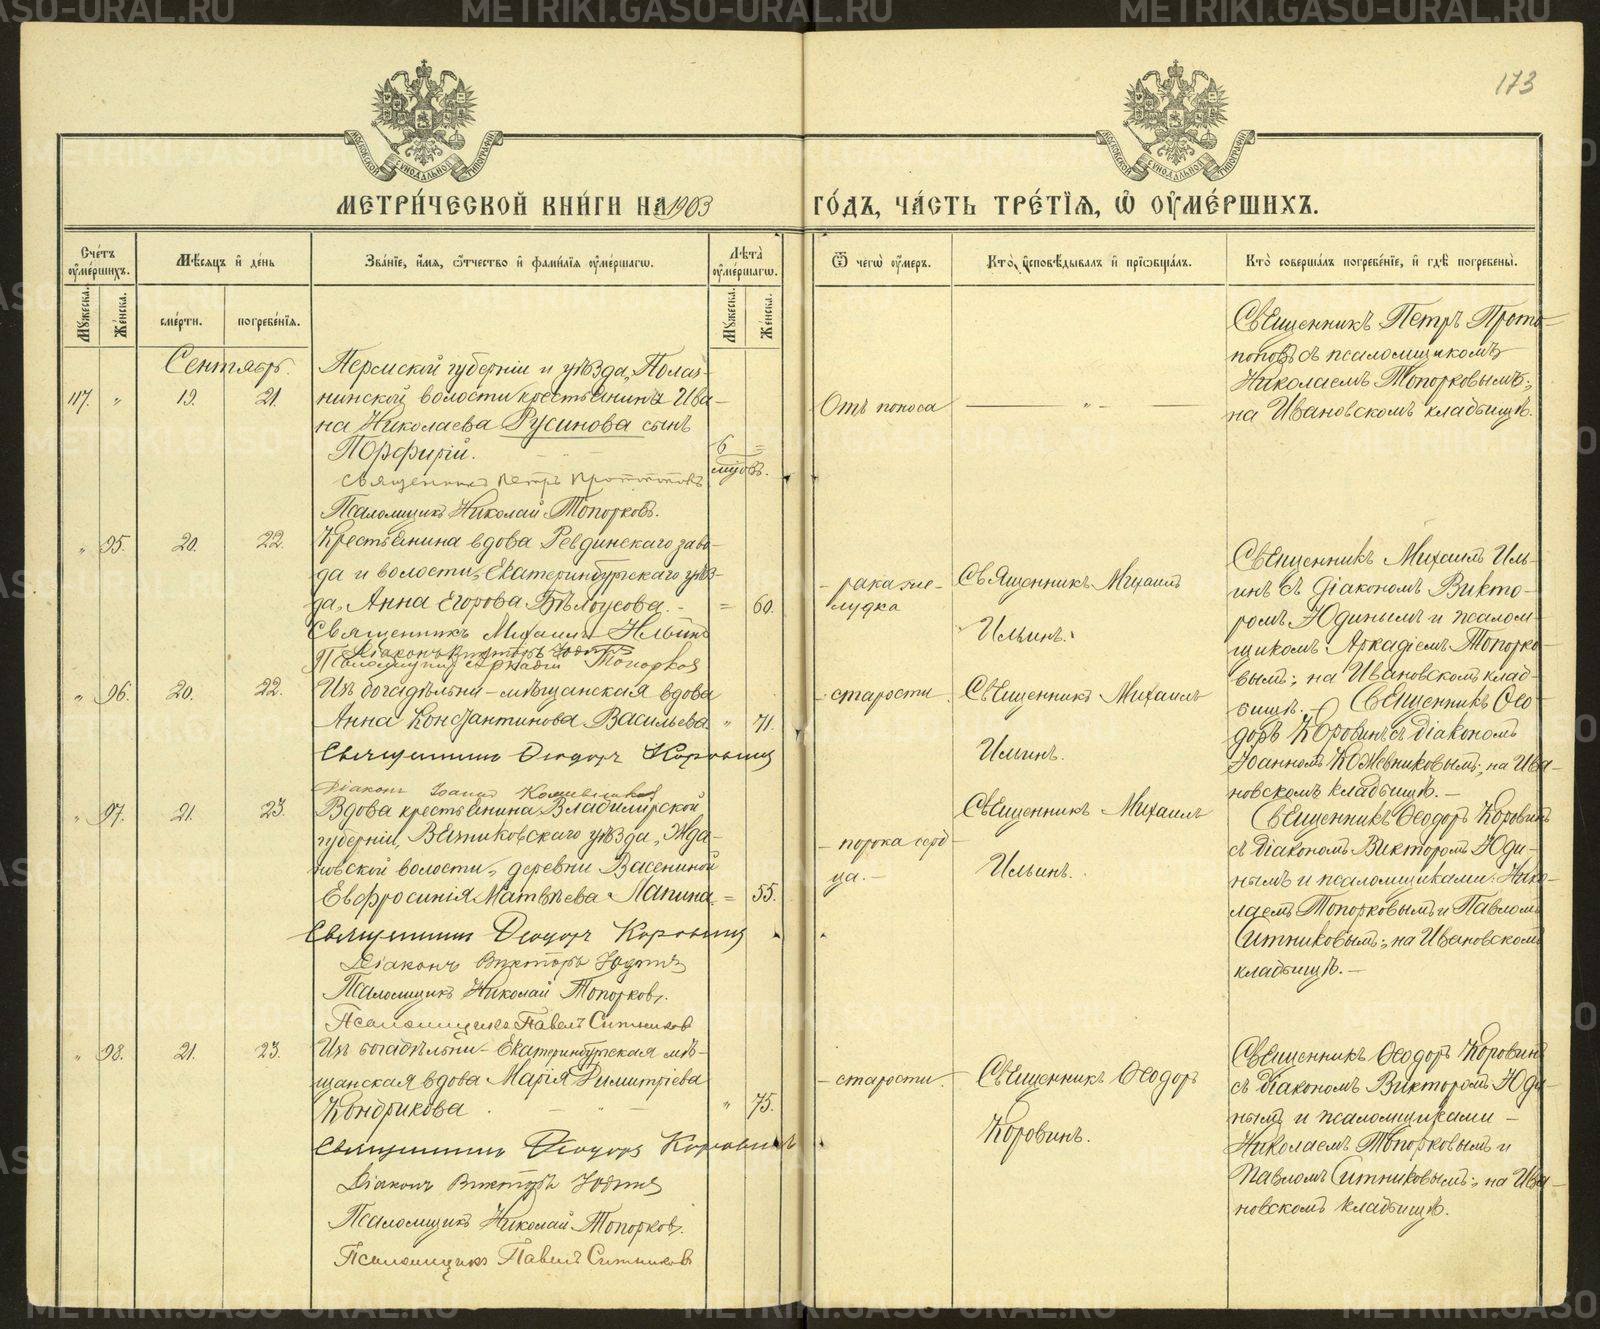 173
МЕТРИ́ЧЕСКОЙ КНИ́ГИ НА 1903 ГО́ДЪ, ЧА́СТЬ ТРЕ́ТІѦ, Ѡ ОУМЕ́РШИХЪ.
Счетъ оумершихъ.
Мѣсяцъ и день
Званіе, имя, отчество и фамилія оумершагѡ.
Лѣта оумершагѡ.
Ѿ чегѡ оумеръ.
Кто исповѣдывалъ и пріобщалъ.
Кто совершалъ погребеніе, и гдѣ погребены.
Мужеска.
Женска.
смерти.
погребенія.
Мужеска.
Женска.
Сентябрь.
117. " 19. 21.
Пермской губерніи и уѣзда, Полаз-
нинской волости крестьянина Ива-
на Николаева Русинова сынъ
Порфирій.
6 =
мѣсяц.
Священникъ Петръ Протопоповъ
Псаломщикъ Николай Топорковъ.
Отъ поноса
— " —
Священникъ Петръ Прото-
поповъ съ псаломщикомъ
Николаемъ Топорковымъ;
на Ивановскомъ кладбищѣ.
" 95. 20. 22.
Крестьянина вдова Ревдинскаго заво-
да и волости, Екатеринбургскаго уѣз-
да, Анна Егорова Бѣлоусова. - = 60.
Священникъ Михаилъ Ильинъ
Діаконъ Викторъ Юдинъ
Псаломщикъ Аркадій Топорков
- рака же-
лудка
Священникъ Михаилъ
Ильинъ.
Священникъ Михаилъ Иль-
инъ съ діакономъ Викто-
ромъ Юдинымъ и псалом-
щикомъ Аркадіемъ Топорко-
вымъ; на Ивановскомъ клад-
бищѣ.
" 96. 20. 22.
Изъ богадѣльни - мѣщанская вдова
Анна Константинова Васильева " 71.
Священникъ Ѳеодоръ Коровинъ
Діаконъ Іоаннъ Кожевников
- старости
Священникъ Михаилъ
Ильинъ.
Священникъ Ѳео-
доръ Коровинъ съ діакономъ
Іоанномъ Кожевниковымъ; на Ива-
новскомъ кладбищѣ. -
" 97. 21. 23.
Вдова крестьянина Владимірской
губерніи, Вязниковскаго уѣзда, Жда-
новской волости, деревни Васениной
Евфросинія Матвѣева Лапина = 55.
Священникъ Ѳеодоръ Коровинъ
Діаконъ Викторъ Юдинъ
Псаломщикъ Николай Топорков.
Псаломщикъ Павелъ Ситников
- порока серд-
ца. -
Священникъ Михаилъ
Ильинъ.
Священникъ Ѳеодоръ Коровинъ
съ діакономъ Викторомъ Юди-
нымъ и псаломщиками: Нико-
лаемъ Топорковымъ и Павломъ
Ситниковымъ; на Ивановскомъ
кладбищѣ. -
" 98. 21. 23.
Изъ богадѣльни - Екатеринбургская мѣ-
щанская вдова Марія Димитріева
Кондрикова. — " — " 75.
Священникъ Ѳеодоръ Коровинъ
Діаконъ Викторъ Юдинъ
Псаломщикъ Николай Топорков.
Псаломщикъ Павелъ Ситников
- старости.
Священникъ Ѳеодоръ
Коровинъ.
Священникъ Ѳеодоръ Коровинъ
съ діакономъ Викторомъ Юди-
нымъ и псаломщиками -
Николаемъ Топорковымъ и
Павломъ Ситниковымъ; на Ива-
новскомъ кладбищѣ.
METRIKI.GASO-URAL.RU